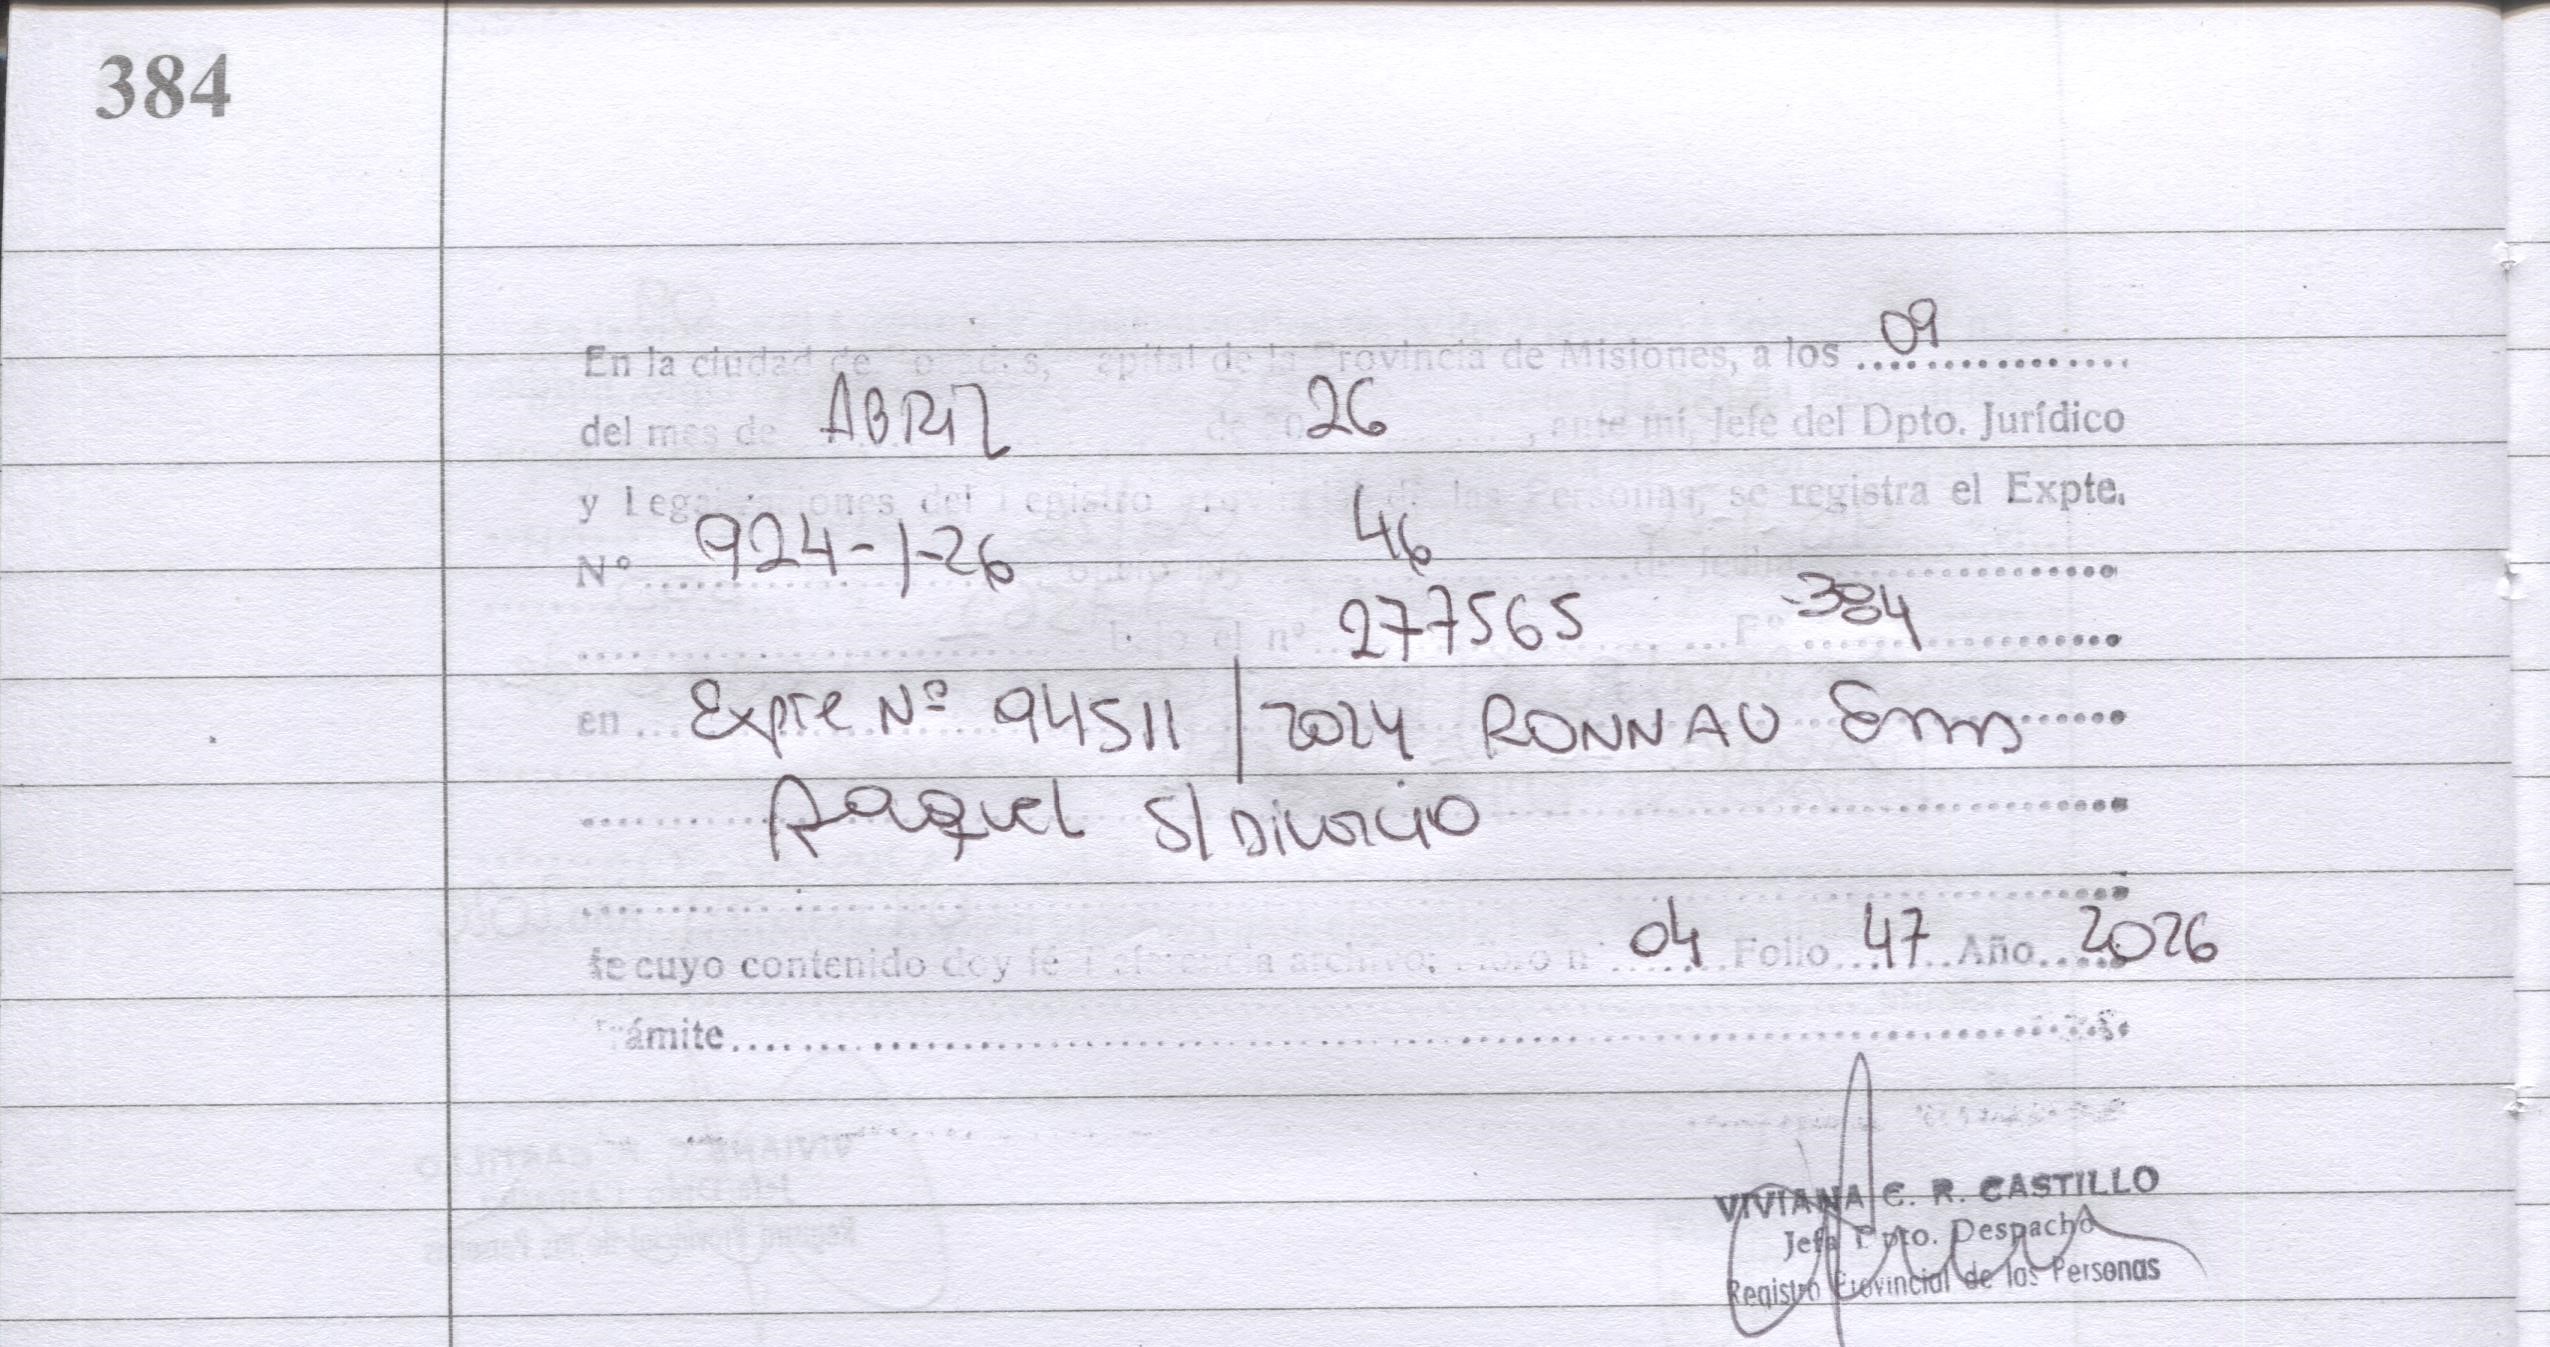 384
En la ciudad de Posadas, Capital de la Provincia de Misiones, a los 09
del mes de ABRIL de 20 26, ante mí, Jefe del Dpto. Jurídico
y Legalizaciones del Registro Provincial de las Personas, se registra el Expte.
N° 924-1-26 46 de fecha
bajo el n° 277565 F° 384
en Expte Nº 94511/2024 RONNAU
Raquel S/ Divorcio
de cuyo contenido doy fé. Referencia archivo: Libro n° 04 Folio 47 Año 2026
Trámite
VIVIANA C. R. CASTILLO
Jefa Dpto. Despacho
Registro Provincial de las Personas